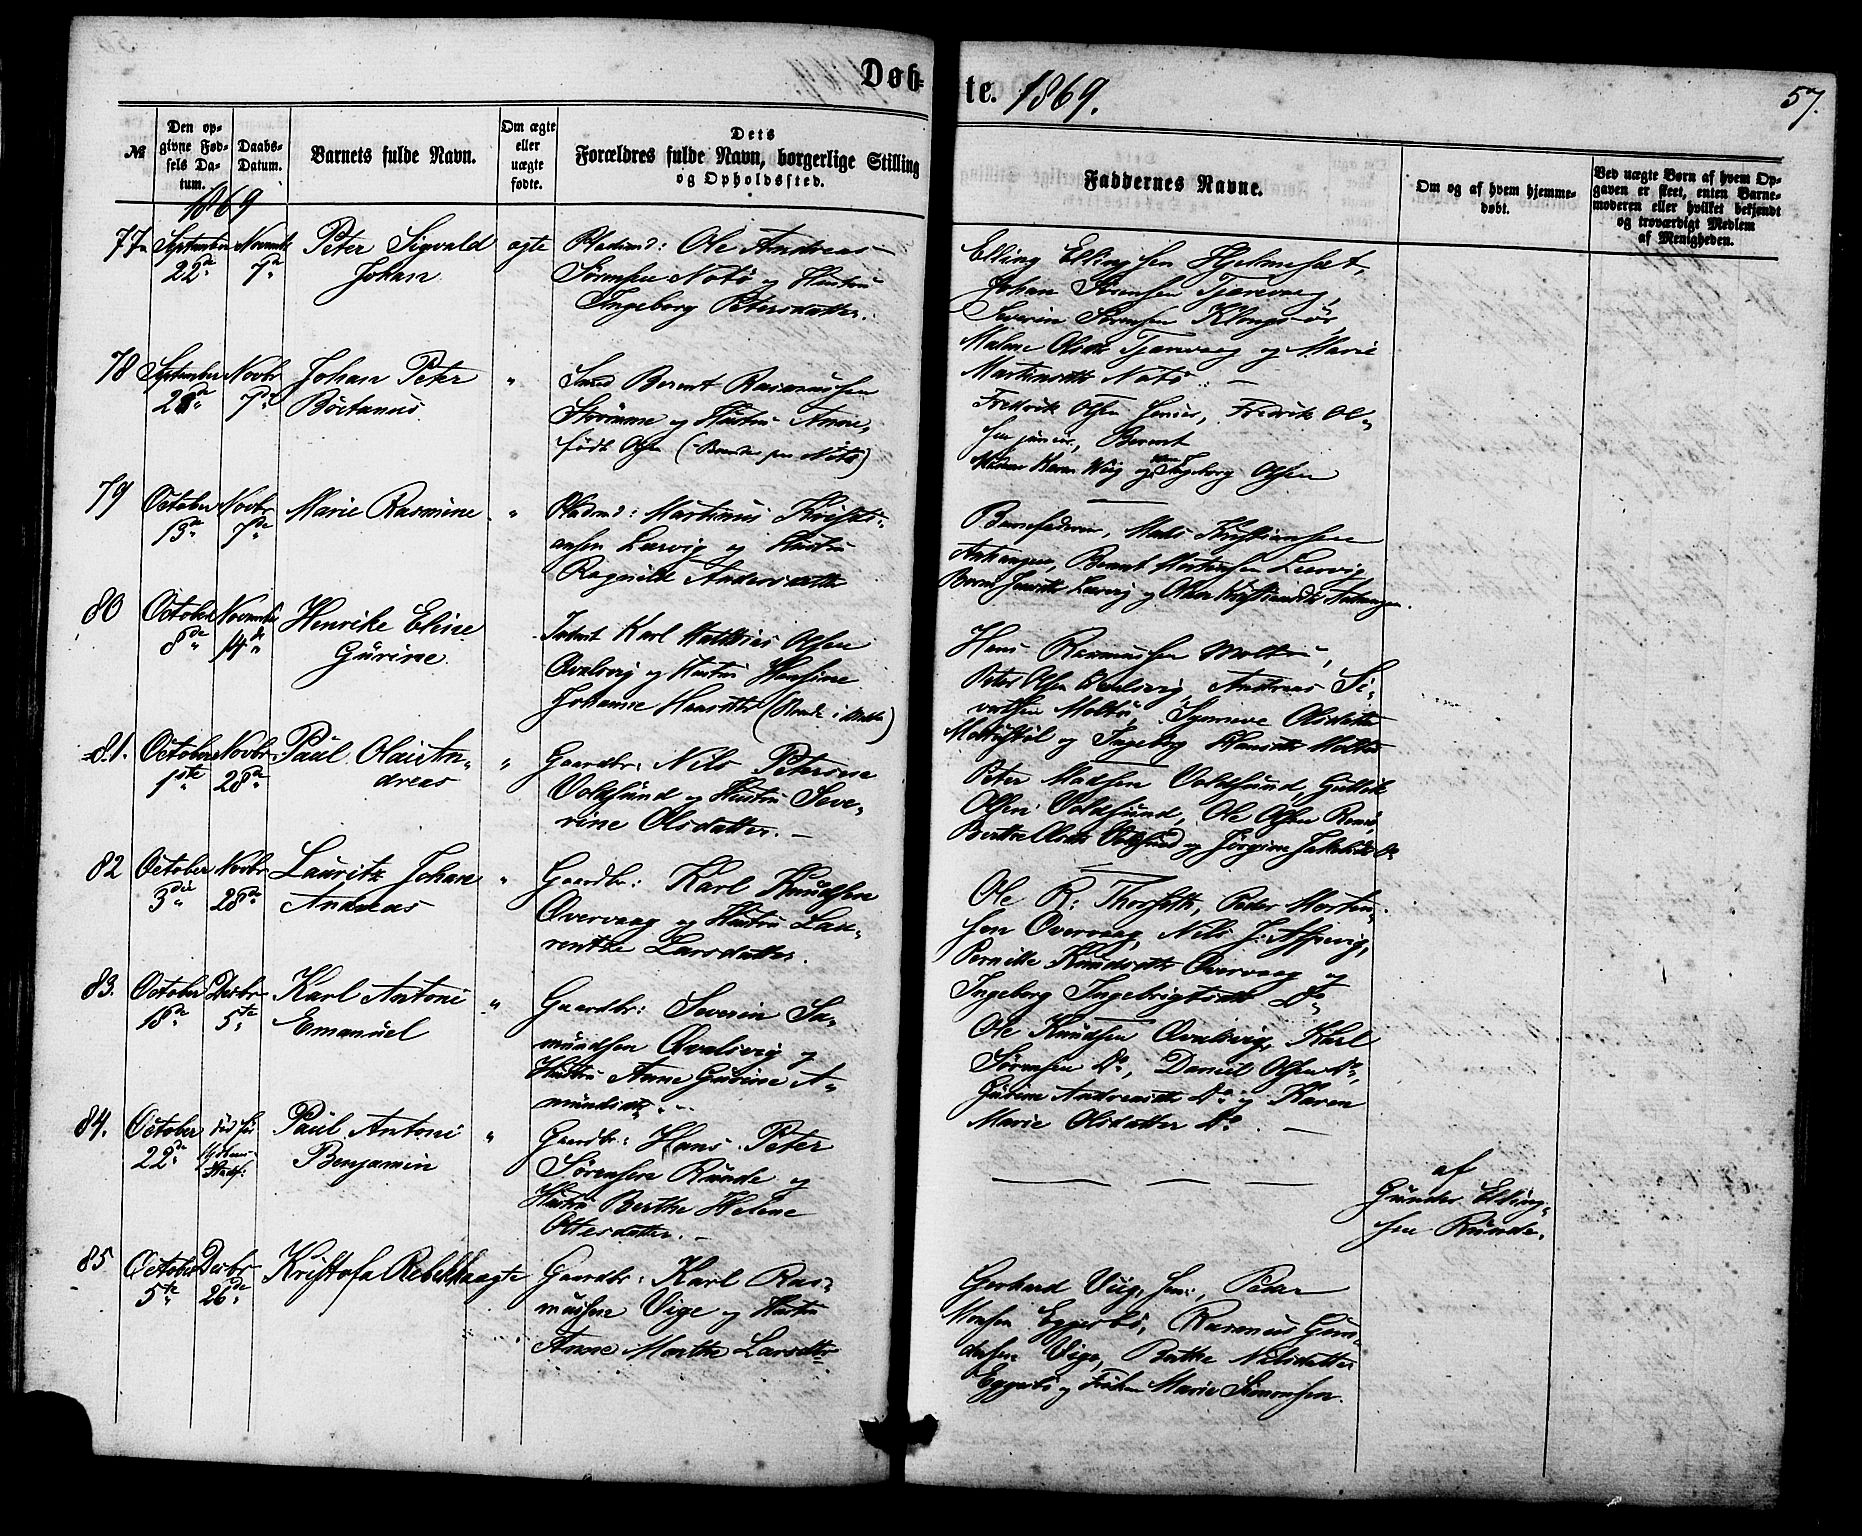 Døb-
te. 1869.
57.
№
Den op-
givne Fød-
sels Da-
tum.
Daabs-
Datum.
Barnets fulde Navn.
Om ægte
eller
uægte
fødte.
Dets
Forældres fulde Navn, borgerlige Stilling
og Opholdssted.
Faddernes Navne.
Om og af hvem hjemme-
døbt.
Ved uægte Børn af hvem Op-
gaven er skeet, enten Barne-
moderen eller hvilket bekjendt
og troværdigt Medlem
af Menigheden.
1869
77
September
22de
7de
Peter Sigvald
Johan
ægte
Pladsmd: Ole Andreas
Sörensen Notö og Hustru
Ingeborg Petersdatter.
Elling Ellingsen Hjelmeset,
Johan Sörensen Tjærvaag,
Severin Sörensen
Malene Olsdtr Tjærvaag og Marie
Martinsdtr Notö. —
78
September
Novbr
7de
Johan Peter
"
Smed Berent Rasmussen
og Hustru Anne,
född Olsen
Fredrik Olsen Senior, Fredrik Ol-
sen junior, Berent
og Ingeborg Olsen
79
October
13de
Novbr
7de
Marie Rasmine
"
Pladsmd: Martinus Kristi-
ansen Lervig og Hustru
Ragnild Andersdatter
Barnefaderen, Mads Kristiansen
Lervig
Lervig og
80
October
8de
14de
Henrike Eline
Gurine
Karl Mathias Olsen
Qvalsvig og Hustru Hansine
Johanne Hansdtr
Hans Rasmussen Moltu,
Peter Olsen Qvalsvig, Andreas Si-
vertsen Moltu, Synneve Olsdatter
og Ingeborg Hansdtr Moltu
81.
October
1ste
Novbr
28de
Paul Olai An-
dreas
"
Gaardbr: Nils Petersen
Voldsund og Hustru Seve-
rine Olsdatter. —
Peter Madsen Voldsund, Gullik
Olsen Voldsund, Ole Olsen
Berthe Olsdtr Voldsund og Jörgine
82
October
3die
Novbr
28de
Lauritz Johan
Andreas
"
Gaardbr: Karl Knudsen
Övervaag og Hustru Lau-
rentze Larsdatter.
Ole R: Thorseth, Peder Morten-
sen Overvaag, Nils J: Aspevig,
Pernille Knudsdtr Overvaag og
Ingeborg Ingebrigtsdtr Do
83.
October
13de
Decbr
5te
Karl Antoni
Emanuel
"
Gaardbr: Severin Sa-
mundsen Qvalsvig og
Hustru Anne Gurine A-
mundsdtr
Ole Knudsen Qvalsvig, Karl
Sörensen Do, Daniel Olsen Do,
Gurine Andreasdtr Do og Karen
Marie Olsdatter Do. —
84.
October
22de
Paul Antoni
Benjamin
"
Gaardbr: Hans Peter
Sörensen Runde og
Hustru Berthe Helene
Ottesdatter. —
af
Gunder Elling-
sen Runde.
85
October
5te
Decbr
26de
Kristofa Rebekka
ægte
Gaardbr: Karl Ras-
mussen Vige og Hustru
Anne Marthe Larsdtr
Gerhard Viig sen:, Peder
Monsen Eggesbö, Rasmus Gun-
dersen Vige, Berthe Nilsdatter
Eggesbö og Fröken Marie Simonsen.